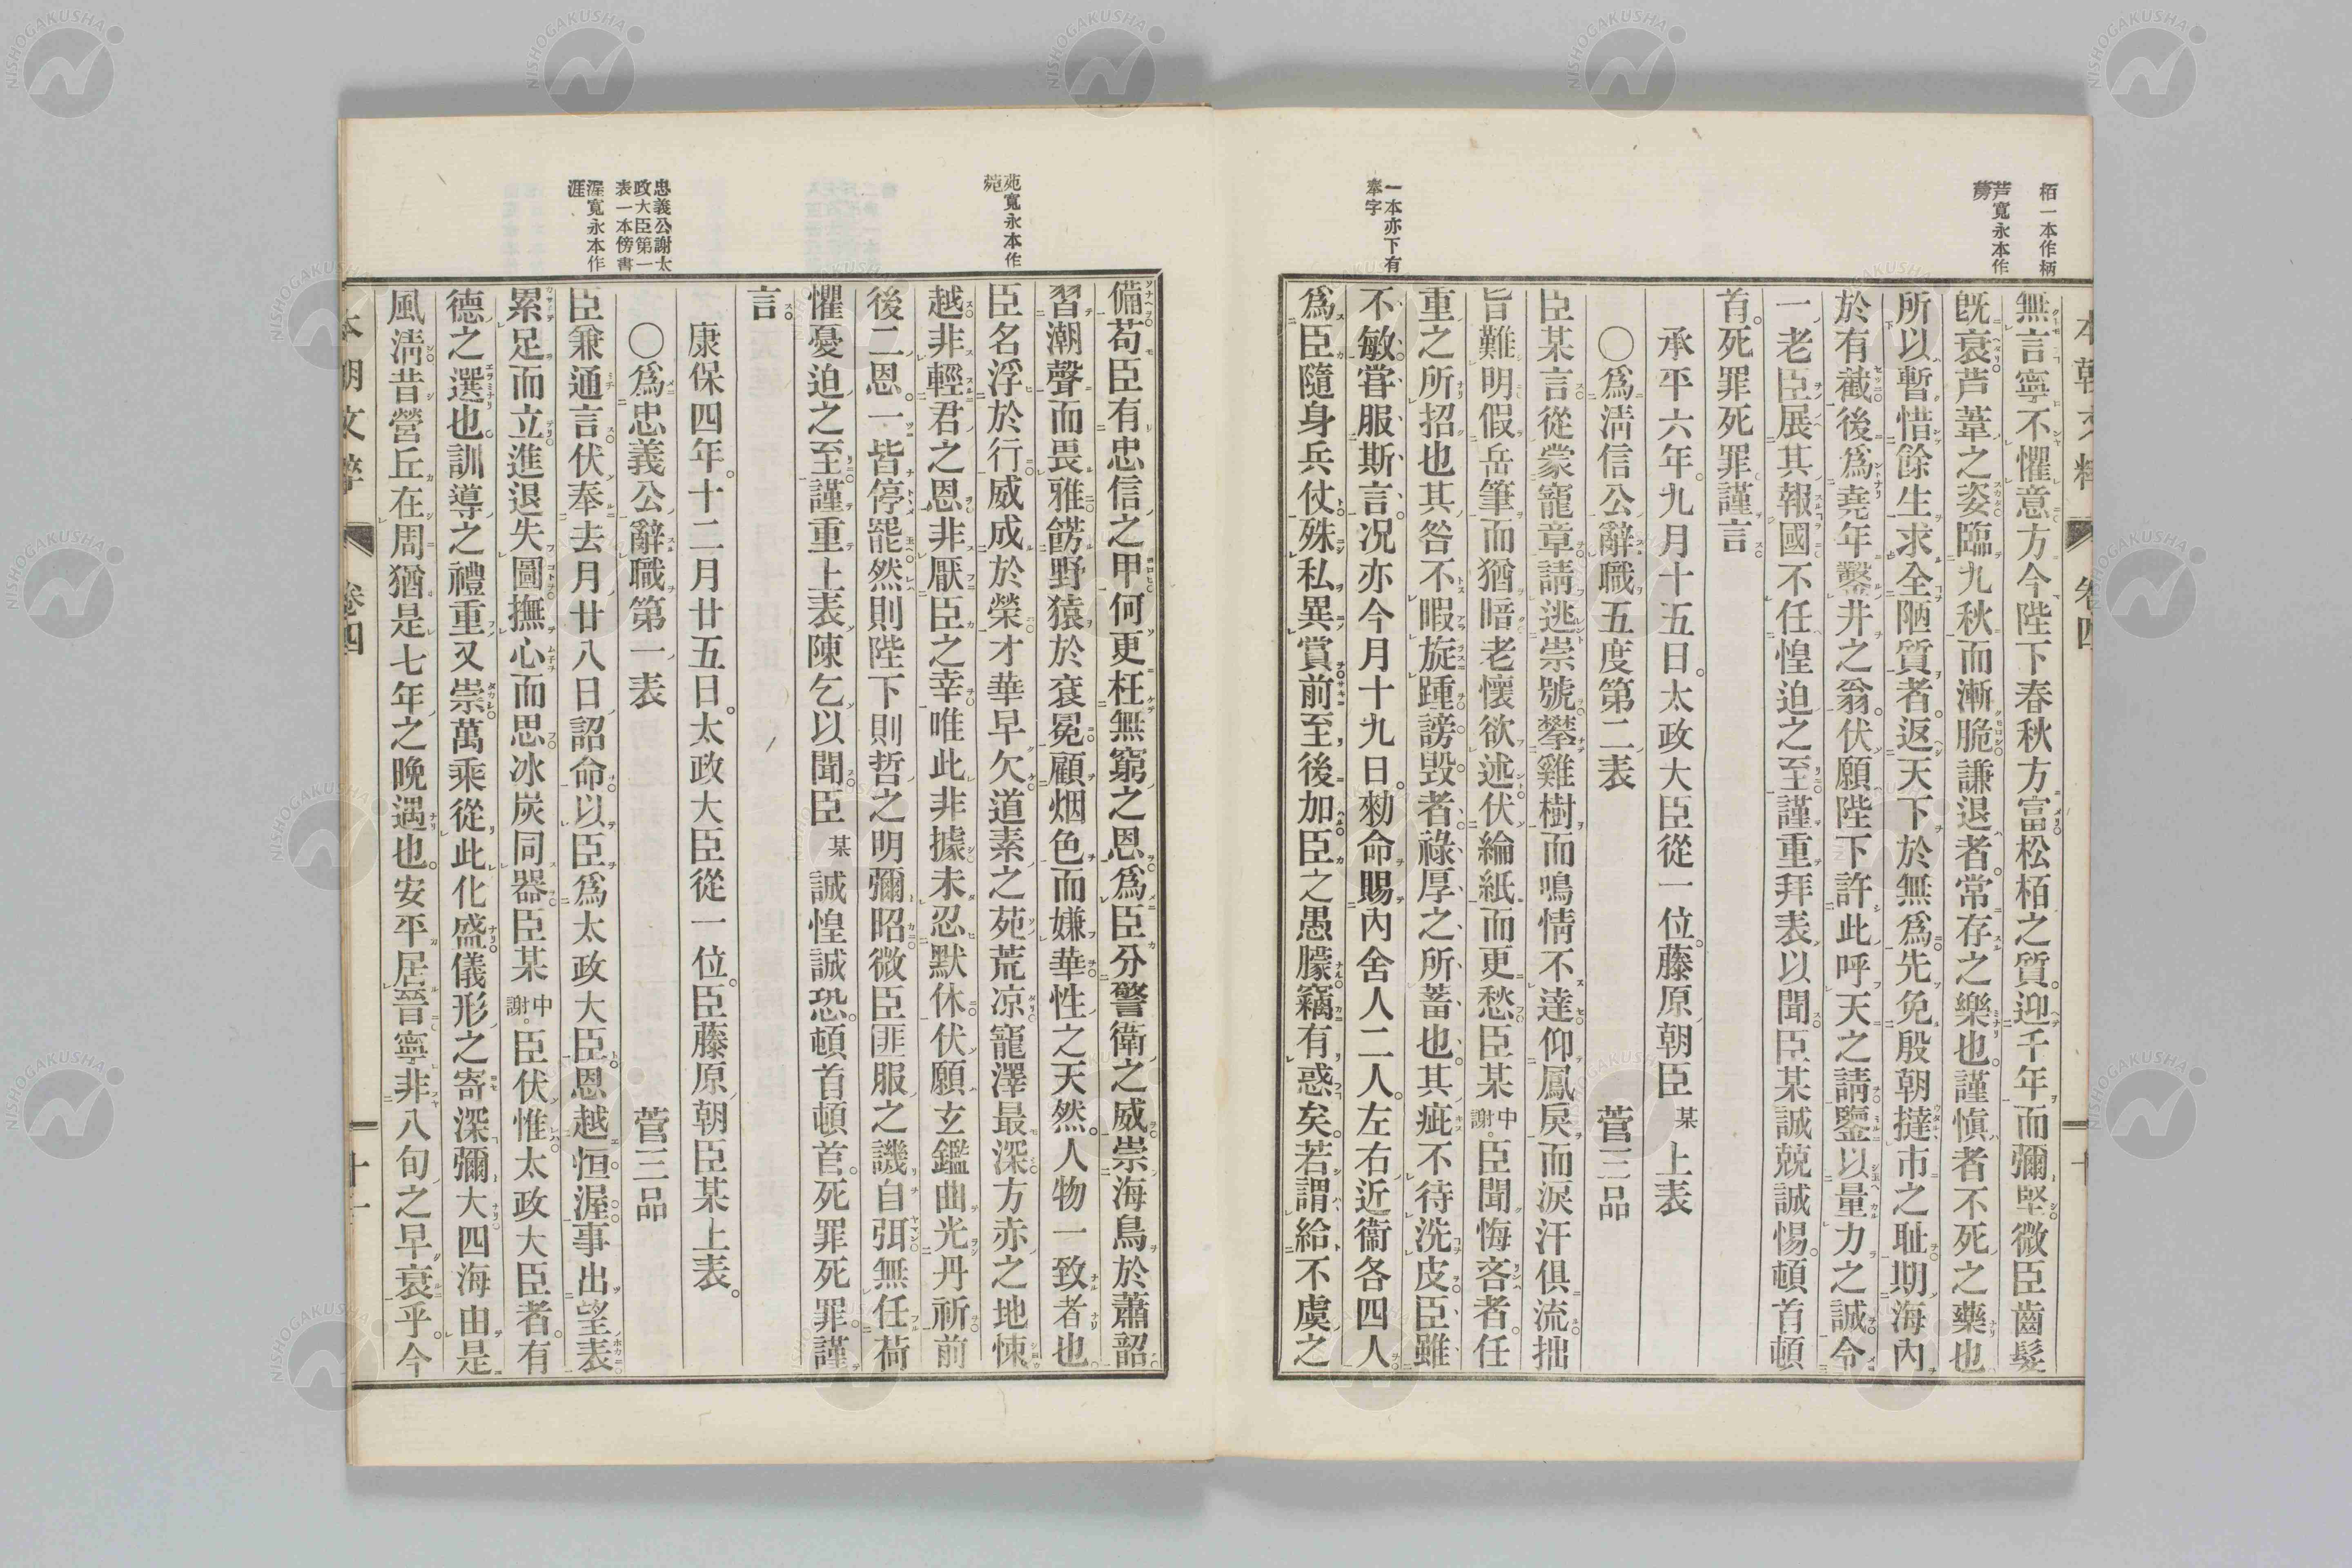 栢一本作柄
芦寛永本作
蒡
一本亦下有
奉字
無言寧不懼意方今陛下春秋方富松栢之質。迎千年而彌堅微臣齒髮
既衰芦葦之姿臨九秋而漸脆謙退者。常存之樂也謹愼者不死之藥也
所以暫惜餘生求全陋質者。返天下於無爲先免殷朝撻市之耻期海內
於有截後爲堯年鑿井之翁。伏願陛下許此呼天之請鑒以量力之誠令
一老臣展其報國不任惶迫之至謹重拜表以聞臣某誠兢誠惕。頓首頓
首。死罪死罪謹言
承平六年。九月十五日。太政大臣從一位。藤原朝臣某上表
○爲淸信公辭職五度第二表 菅三品
臣某言從蒙寵章請逃崇號攀雞樹而鳴情不達仰鳳戾而淚汗俱流拙
旨難明假岳筆而猶暗老懷欲述伏綸紙而更愁臣某中謝。臣聞悔吝者。任
重之所招也其咎不暇旋踵謗毀者祿厚之所蓄也其疵不待洗皮臣雖
不敏嘗服斯言。况亦今月十九日。勅命賜內舍人二人。左右近衞各四人。
爲臣隨身兵仗殊私異賞前至後加臣之愚朦竊有惑矣。若謂給不虞之
本朝文粹 卷四 十
苑寛永本作
菀
忠義公謝太
政大臣第一
表一本傍書
渥寛永本作
涯
備苟臣有忠信之甲何更枉無窮之恩爲臣分警衛之威崇海鳥於蕭韶
習潮聲而畏雅餝野猿於袞冕顧烟色而嫌華性之天然。人物一致者也
臣名浮於行威成於榮才華早欠道素之苑荒凉寵澤最深方赤之地悚
越非輕君之恩非厭臣之幸唯此非據未忍默休伏願玄鑑曲光丹祈前
後二恩。一皆停罷然則陛下則哲之明彌昭微臣匪服之譏自弭無任荷
懼憂迫之至謹重上表陳乞以聞臣某誠惶誠恐。頓首頓首。死罪死罪。謹
言。
康保四年。十二月廿五日。太政大臣從一位。臣藤原朝臣某上表。
○爲忠義公辭職第一表 菅三品
臣兼通言伏奉去月廿八日詔命以臣爲太政大臣恩越恒渥事出望表
累足而立進退失圖撫心而思冰炭同器臣某中謝。臣伏惟太政大臣者。有
德之選也訓導之禮重又崇萬乘從此化盛儀形之寄深彌大四海由是
風淸昔營丘在周猶是七年之晚遇也。安平居晉寧非八旬之早衰乎。今
本朝文粹 卷四 十一